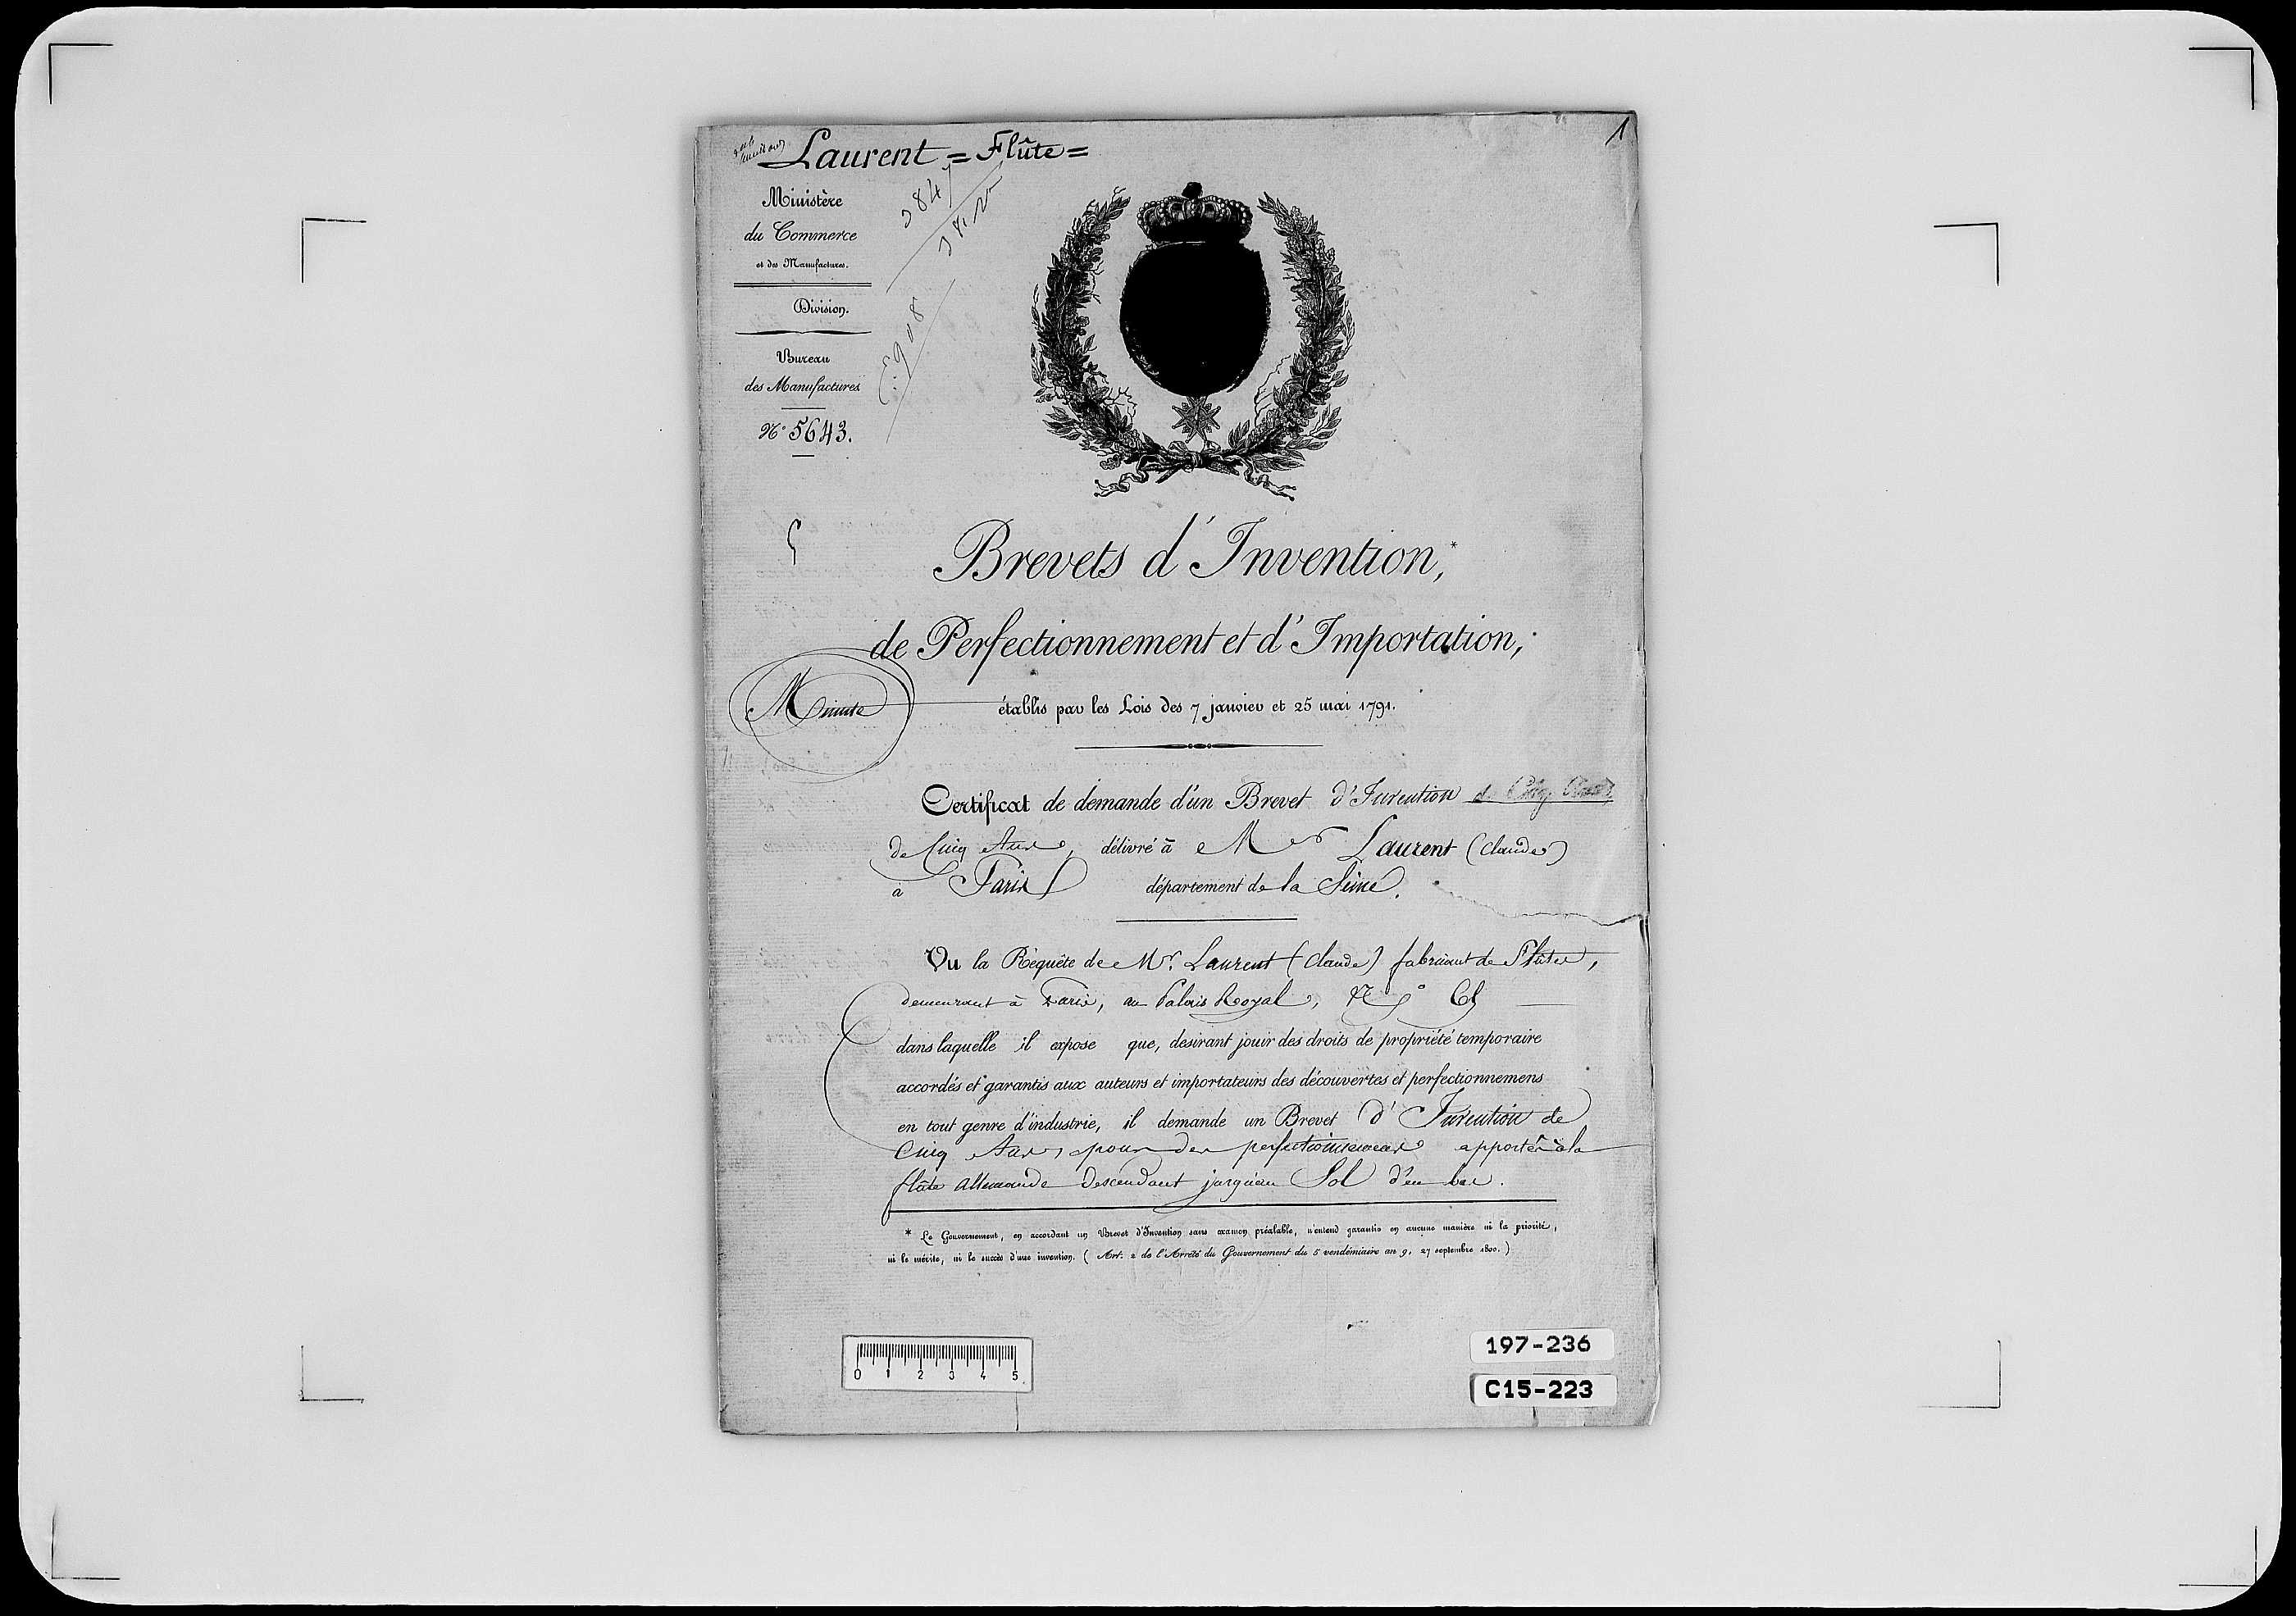 Laurent = Flûte =
1
Ministère
du Commerce
et des Manufactures.
Division.
Bureau
des Manufactures
N° 5643.
Brevets d'Invention,*
de Perfectionnement et d'Importation,
Minute
établis par les Lois des 7 janvier et 25 mai 1791.
Certificat de demande d'un Brevet d'Invention
de Cinq Ans, délivré à Mr Laurent (Claude)
à Paris département de la Seine.
Vu la Requête de Mr. Laurent (Claude) fabricant de Flûtes,
demeurant à Paris, au Palais Royal, N°
dans laquelle il expose que, desirant jouir des droits de propriété temporaire
accordés et garantis aux auteurs et importateurs des découvertes et perfectionnemens
en tout genre d'industrie, il demande un Brevet d'Invention de
Cinq Ans, pour des perfectionnemens apportés à la
flûte allemande descendant jusqu'au Sol d'en bas.
* Le Gouvernement, en accordant un Brevet d'Invention sans examen préalable, n'entend garantir en aucune manière ni la priorité,
ni le mérite, ni le succès d'une invention. (Art. 2 de l'Arrêté du Gouvernement du 5 vendémiaire an 9, 27 septembre 1800.)
0 1 2 3 4 5
197-236
C15-223